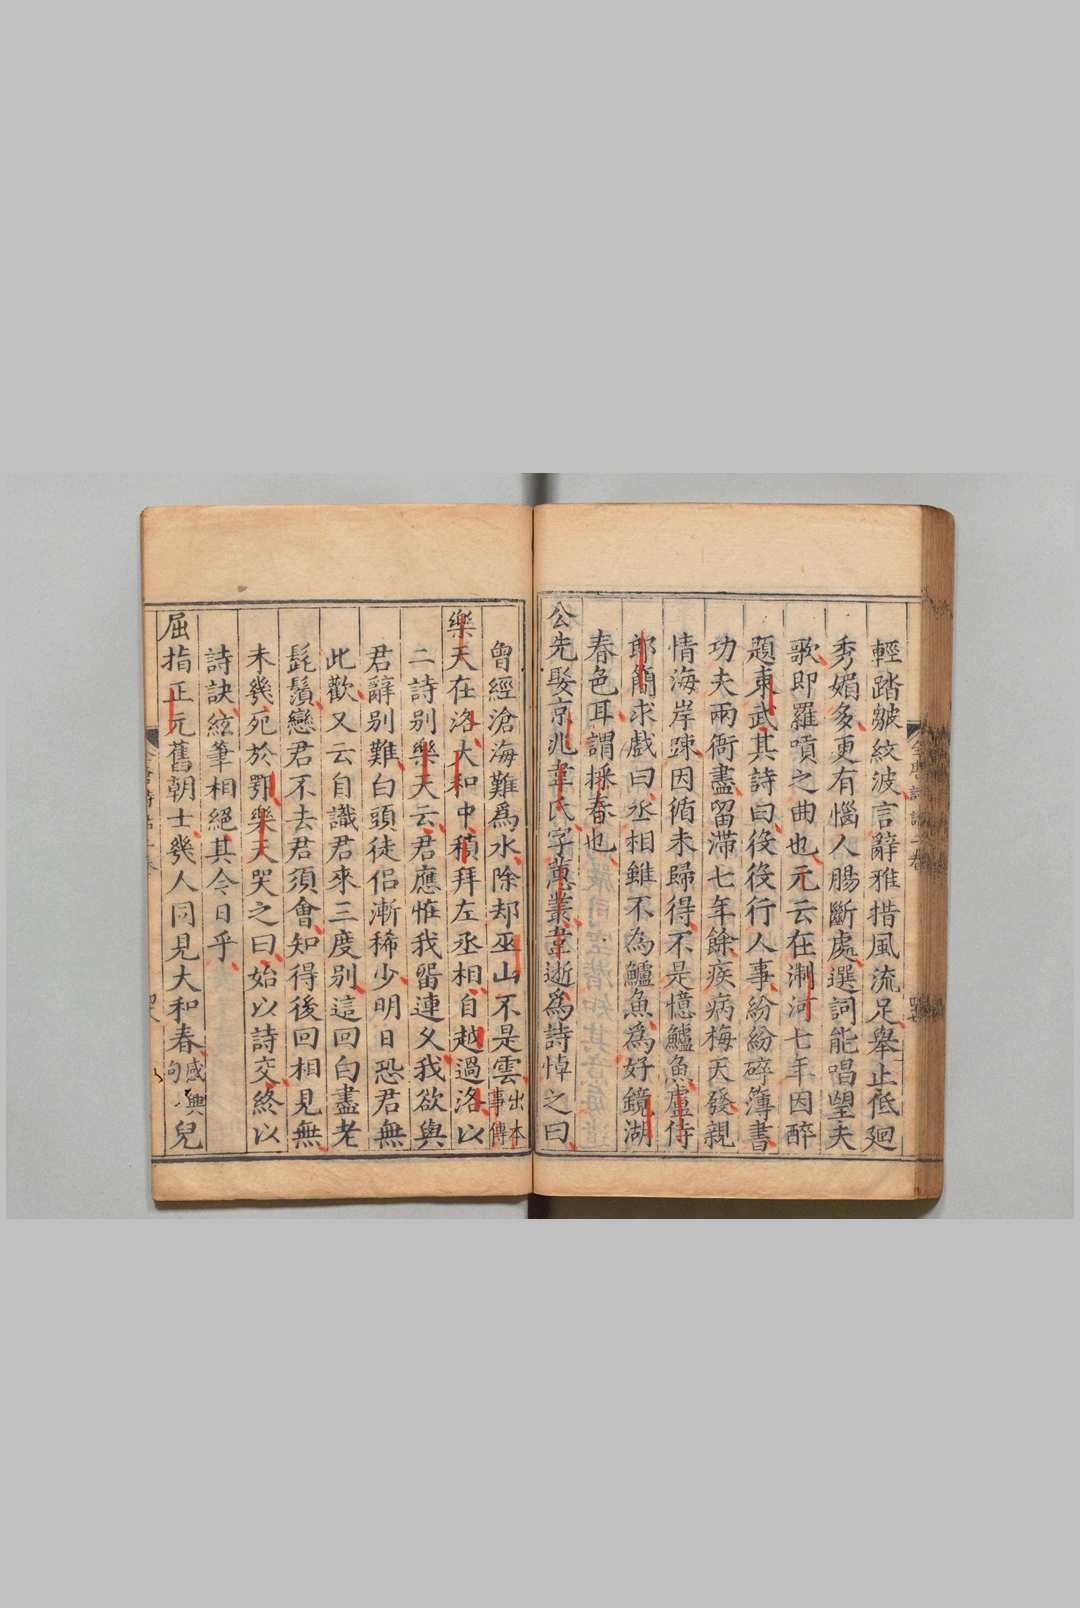 輕踏皺紋波言辭雅措風流足舉止低廻
秀媚多更有惱人腸斷處選詞能唱望夫
歌即羅嗊之曲也元云在淛河七年因醉
題東武其詩曰役役行人事紛紛碎簿書
功夫兩衙盡留滯七年餘疾病梅天發親
情海岸踈因循未歸得不是憶鱸魚盧侍
郎簡求戲曰丞相雖不為鱸魚爲好鏡湖
春色耳謂採春也
公先娶京兆韋氏字蕙叢韋逝爲詩悼之曰
曾經滄海難爲水除却巫山不是雲出本事傳
樂天在洛大和中積拜左丞相自越過洛以
二詩别樂天云君應惟我留連乆我欲與
君辭别難白頭徒侣漸稀少明日恐君無
此歡又云自識君來三度别這回白盡老
髭鬚戀君不去君須會知得後回相見無
未幾死於鄂樂天哭之曰始以詩交終以
詩訣絃筆相絕其今日乎
屈指正元舊朝士幾人同見大和春感興句兒
全唐詩話二卷